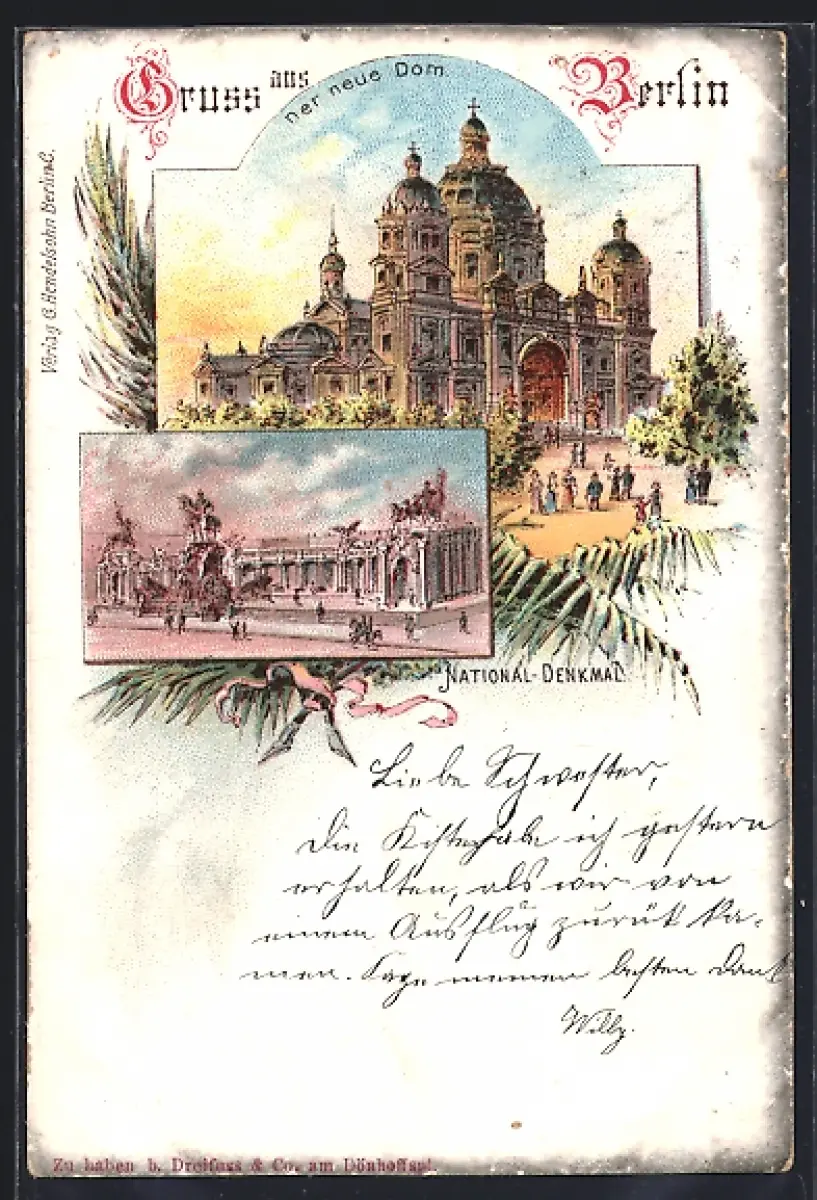 Gruss aus Berlin
Der neue Dom
Verlag G. Hendelsohn Berlin C.
NATIONAL-DENKMAL.
Liebe Schwester,
die Kiste habe ich gestern
erhalten, als wir von
einem Ausflug zurük ka-
men. Sage meinen besten Dank
Willy.
Zu haben b. Dreifuss & Co. am Dönhoffspl.